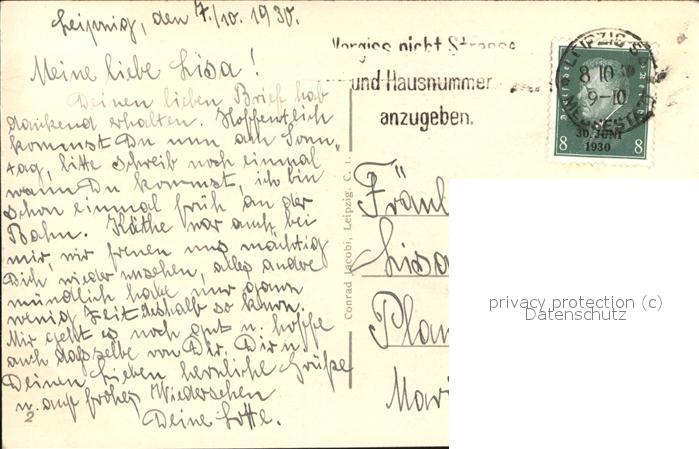 Leipzig, den 7./10. 1930.
Meine liebe Lisa!
Deinen lieben Brief hab
dankend erhalten. Hoffentlich
kommst Du nun am Sonn-
tag, bitte schreib noch einmal
wann Du kommst, ich bin
schon einmal früh an der
Bahn. Käthe war auch bei
mir, wir freuen uns mächtig
Dich wieder zusehen, alles andre
mündlich habe nur ganz
wenig Zeit deshalb so kurz.
Mir geht es noch gut u. hoffe
auch dasselbe von Dir. Dir u.
Deinen Lieben herzliche Grüße
u. auf frohes Wiedersehen
Deine Lotte.
2
Conrad Jacobi, Leipzig. C. 1.
Vergiss nicht Strasse
und Hausnummer
anzugeben.
LEIPZIG
8 10 30
9-10
30. JUNI
1930
8 8
Fräul
Lisa
Plau
Mari
privacy protection (c)
Datenschutz